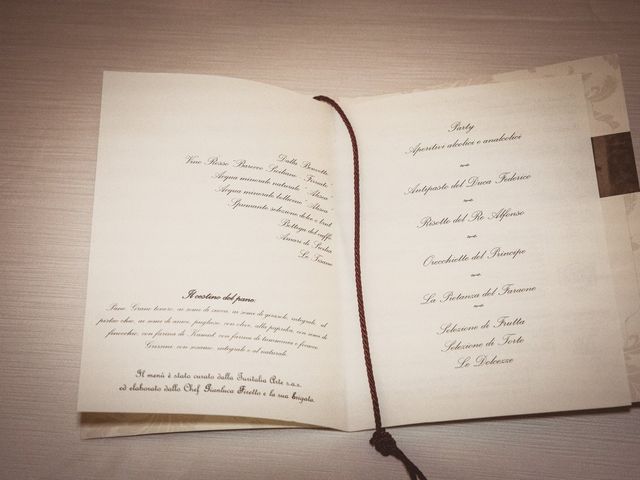 Dalle Benvitte
Vino Rosso "Barocco Siciliano" "Firriato"
Acqua minerale naturale "Alisea"
Acqua minerale bollicine "Alisea"
Spumante selezione dolce e brut
Bottega del caffè
Amari di Sicilia
Le Tisane
Il cestino del pane:
Pane Grano tenero, ai semi di zucca, ai semi di girasole, integrale al
pistacchio, ai semi di anice, pugliese con olive, alla paprika, con semi di
finocchio, con farina di Kamut, con farina di
Grissini con sesamo, integrale e al naturale.
Il menù è stato curato dalla Turitalia Arte s.a.s.
ed elaborato dallo Chef Gianluca Firetto e la sua brigata.
Party
Aperitivi alcolici e analcolici
Antipasto del Duca Federico
Risotto del Re Alfonso
Orecchiette del Principe
La Pietanza del Faraone
Selezione di Frutta
Selezione di Torte
Le Dolcezze